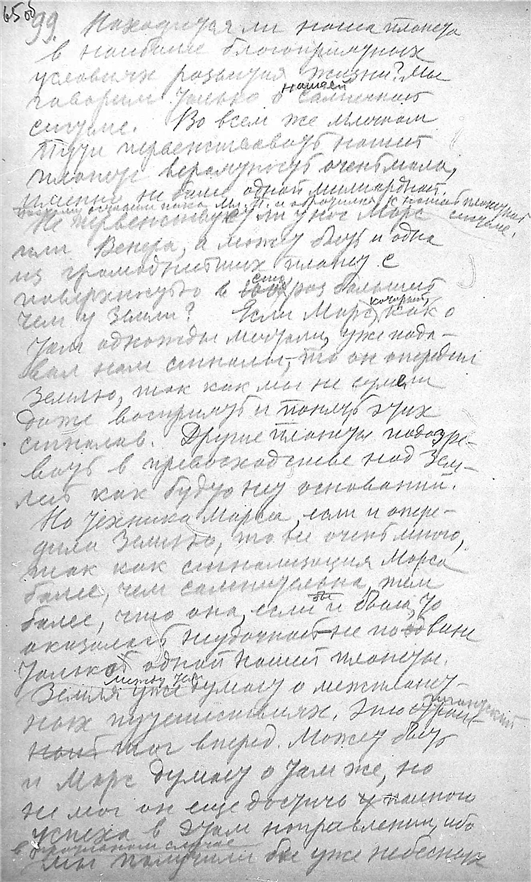 65об
99. Находится ли наша планета
в наиболее благоприятных
условиях развития жизни? Мы
говорим только о нашей солнечной
системе. Во всем же млечном
пути первенствовать нашей
планете вероятность очень мала,
именно не более одной миллиардной.
к нашей планетной
Не первенствует ли у нас Марс системе.
или Венера, а может быть и одна
из громаднейших планет с
поверхностью в сто раз большей
чем у Земли? Если Марс, который, как о
том однажды мечтали, уже пода-
вал нам сигналы, то он опередил
Землю, так как мы не сумели
даже воспринять и понять этих
сигналов. Другие планеты подозре-
вать в превосходстве над Зем-
лей как будто нет оснований.
Но техника Марса, если и опере-
дила Землю, то не очень много,
так как сигнализация Марса
более, чем сомнительна, тем
более, что она, если бы и была, то
оказалась неудачной не по вине
только одной нашей планеты.
Земля уже думает о межпланет-
ных путешествиях. Это
шаг вперед. Может быть
и Марс думает о том же, но
не мог он еще достичь полного
успеха в этом направлении, ибо
в противном случае
мы получили бы уже небесных